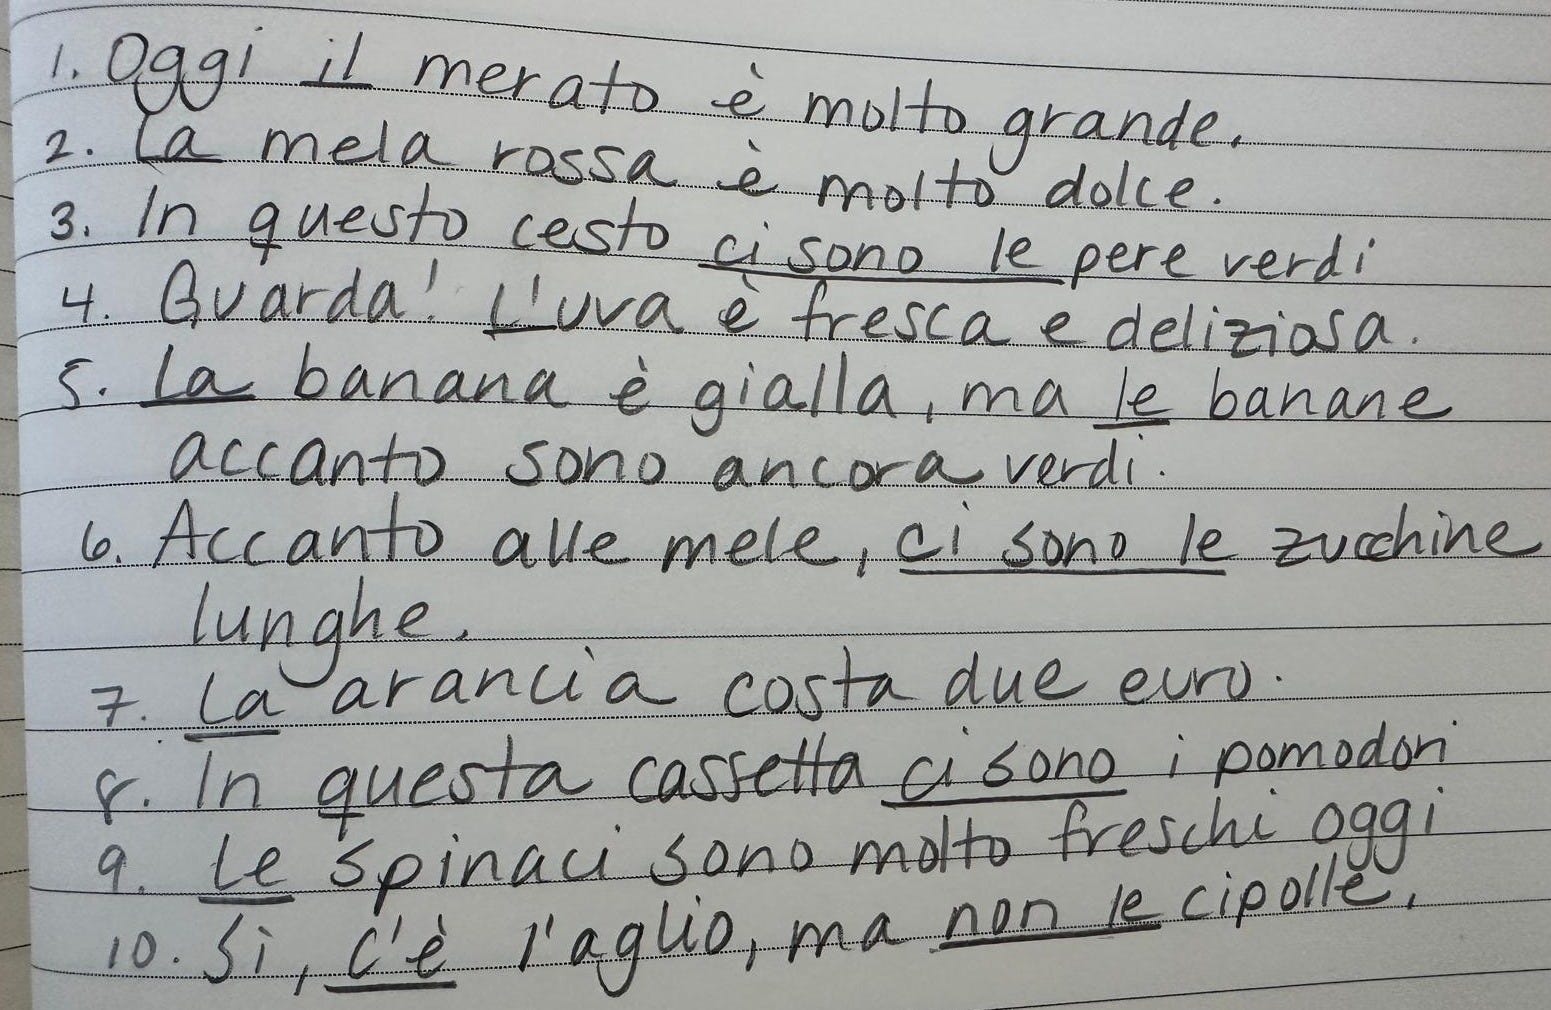 1. Oggi il merato è molto grande.
2. La mela rossa è molto dolce.
3. In questo cesto ci sono le pere verdi
4. Guarda! L'uva è fresca e deliziosa.
5. La banana è gialla, ma le banane
accanto sono ancora verdi.
6. Accanto alle mele, ci sono le zucchine
lunghe.
7. La arancia costa due euro.
8. In questa cassetta ci sono i pomodori
9. Le spinaci sono molto freschi oggi
10. Sì, c'è l'aglio, ma non le cipolle.